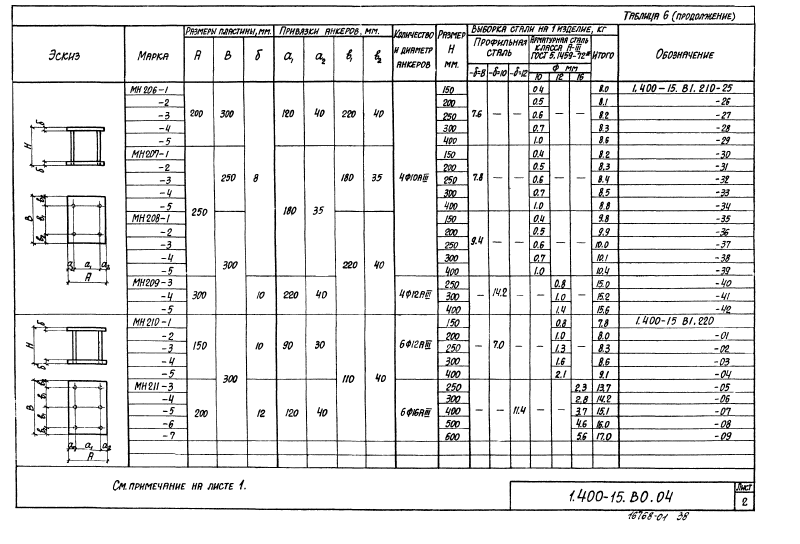 Таблица 6 (продолжение)
Эскиз Марка Размеры пластины, мм. Привязки анкеров, мм. Количество и диаметр анкеров Размер H мм. Выборка стали на 1 изделие, кг Обозначение
А В б a₁ a₂ в₁ в₂ Профильная сталь Арматурная сталь класса А-III ГОСТ 5.1459-72* Итого
-δ=8 -δ=10 -δ=12 Ф мм
10 12 16
МН206-1 200 300 8 120 40 220 40 4Ф10АIII 150 7.6 — — 0.4 — — 8.0 1.400-15.В1.210-25
-2 200 0.5 8.1 -26
-3 250 0.6 8.2 -27
-4 300 0.7 8.3 -28
-5 400 1.0 8.6 -29
МН207-1 250 250 180 35 180 35 150 7.8 — — 0.4 — — 8.2 -30
-2 200 0.5 8.3 -31
-3 250 0.6 8.4 -32
-4 300 0.7 8.5 -33
-5 400 1.0 8.8 -34
МН208-1 300 220 40 150 9.4 — — 0.4 — — 9.8 -35
-2 200 0.5 9.9 -36
-3 250 0.6 10.0 -37
-4 300 0.7 10.1 -38
-5 400 1.0 10.4 -39
МН209-3 300 10 220 40 4Ф12АIII 250 — 14.2 — — 0.8 — 15.0 -40
-4 300 1.0 15.2 -41
-5 400 1.4 15.6 -42
МН210-1 150 300 10 90 30 110 40 6Ф12АIII 150 — 7.0 — — 0.8 — 7.8 1.400-15 В1.220
-2 200 1.0 8.0 -01
-3 250 1.3 8.3 -02
-4 300 1.6 8.6 -03
-5 400 2.1 9.1 -04
МН211-3 200 12 120 40 6Ф16АIII 250 — — 11.4 — — 2.3 13.7 -05
-4 300 2.8 14.2 -06
-5 400 3.7 15.1 -07
-6 500 4.6 16.0 -08
-7 600 5.6 17.0 -09
б
H
б
В
в₂
в₁
в₂
a₂ a₁ a₂
А
б
H
б
В
в₂
в₁
в₁
в₂
a₂ a₁ a₂
А
См. примечание на листе 1.
1.400-15.В0.04
Лист
2
16768-01 38